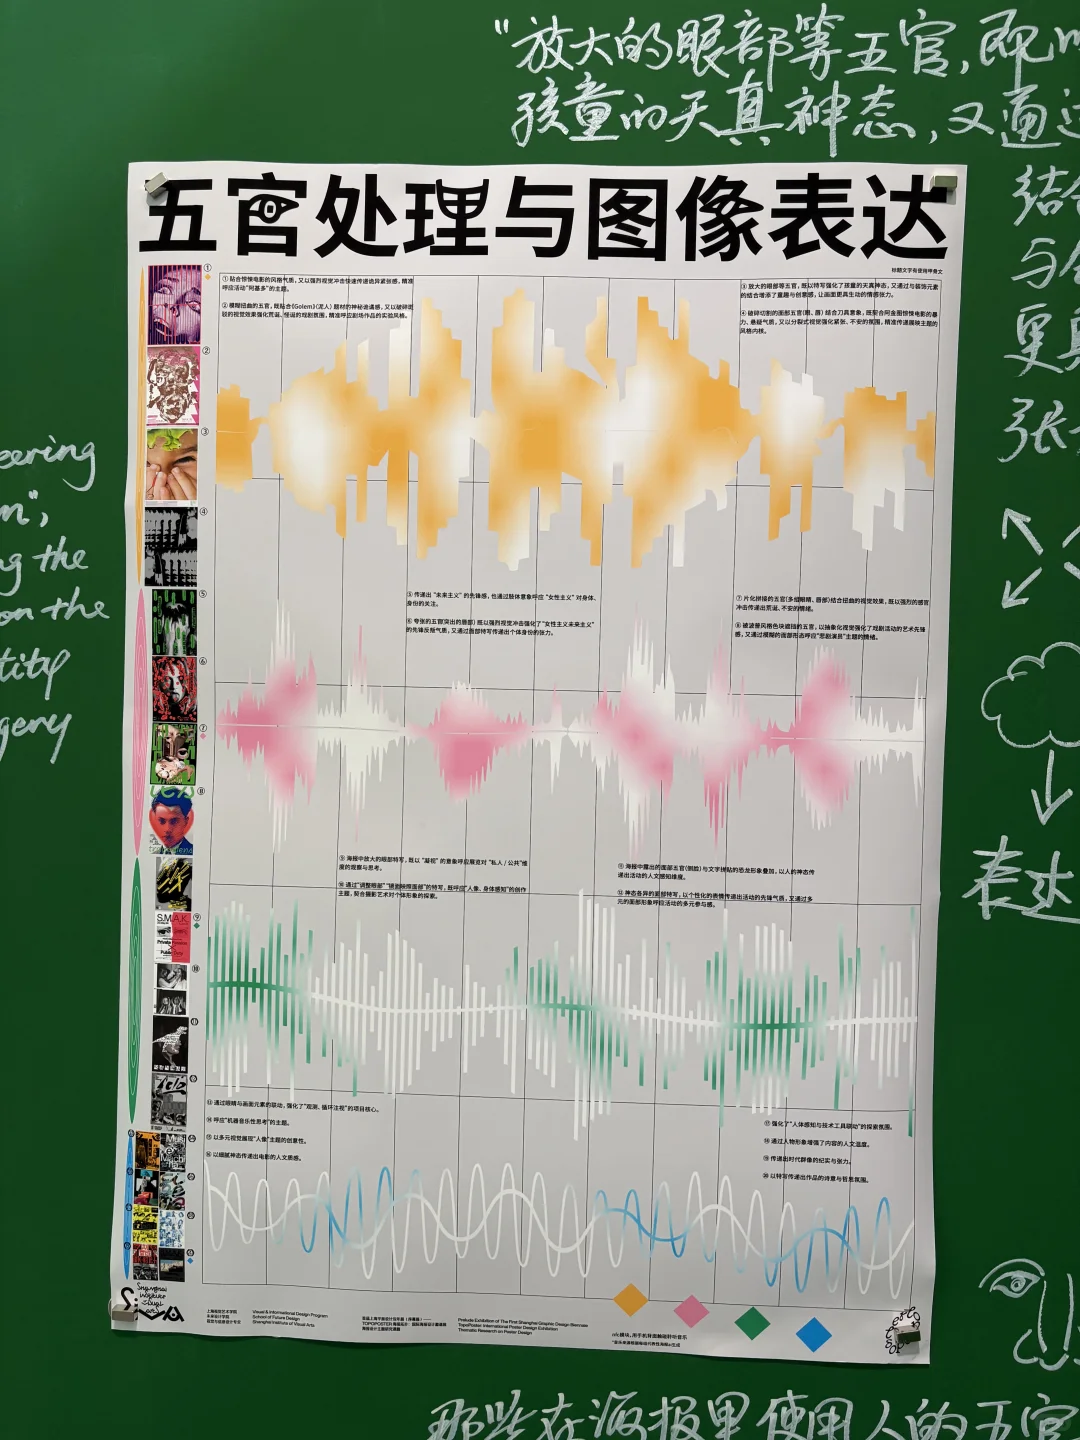 "放大的眼部等五官,既以
孩童的天真神态,又通过
五官处理与图像表达
标题文字有使用甲骨文
① 贴合惊悚电影的风格气质,又以强烈视觉冲击快速传递诡异紧张感,精准
呼应活动"阿基多"的主题。
② 模糊扭曲的五官,既贴合《Golem》(泥人)题材的神秘诡谲感,又以破碎斑
驳的视觉效果强化荒诞、怪诞的戏剧氛围,精准呼应剧场作品的实验风格。
③ 放大的眼部等五官,既以特写强化了孩童的天真神态,又通过与装饰元素
的结合增添了童趣与创意感,让画面更具生动的情感张力。
④ 破碎切割的面部五官(眼、唇)结合刀具意象,既契合阿金图惊悚电影的暴
力、悬疑气质,又以分裂式视觉强化紧张、不安的氛围,精准传递展映主题的
风格内核。
结合
更具
eering
m",
ng the
on the
tity
gery
⑤ 传递出"未来主义"的先锋感,也通过肢体意象呼应"女性主义"对身体、
身份的关注。
⑥ 夸张的五官(突出的唇部)既以强烈视觉冲击强化了"女性主义未来主义"
的先锋反叛气质,又通过面部特写传递出个体身份的张力。
⑦ 片化拼接的五官(多组眼睛、唇部)结合扭曲的视觉效果,既以强烈的感官
冲击传递出荒诞、不安的情绪。
⑧ 被波普风格色块遮挡的五官,以抽象化视觉强化了戏剧活动的艺术先锋
感,又通过模糊的面部形态呼应"悲剧演员"主题的情绪。
⑨ 海报中放大的眼部特写,既以"凝视"的意象呼应展览对"私人 / 公共"维
度的观察与思考。
⑩ 通过"调整眼部""镜面映照面部"的特写,既呼应"人像、身体感知"的创作
主题,契合摄影艺术对个体形象的探索。
⑪ 海报中露出的面部五官(侧脸)与文字拼贴的恐龙形象叠加,以人的神态传
递出活动的人文感知维度。
⑫ 神态各异的面部特写,以个性化的表情传递出活动的先锋气质,又通过多
元的面部形象呼应活动的多元参与感。
表达
⑬ 通过眼睛与画面元素的联动,强化了"观测、循环注视"的项目核心。
⑭ 呼应"机器音乐性思考"的主题。
⑮ 以多元视觉展现"人像"主题的创意性。
⑯ 以细腻神态传递出电影的人文质感。
⑰ 强化了"人体感知与技术工具联动"的探索氛围。
⑱ 通过人物形象增强了内容的人文温度。
⑲ 传递出时代群像的纪实与张力。
⑳ 以特写传递出作品的诗意与哲思氛围。
上海视觉艺术学院
未来设计学院
视觉与信息设计专业
Visual & Informational Design Program
School of Future Design
Shanghai Institute of Visual Arts
首届上海平面设计双年展(序幕展)——
TOPOPOSTER 海报高步·国际海报设计邀请展
海报设计主题研究课题
Prelude Exhibition of The First Shanghai Graphic Design Biennale
TopoPoster International Poster Design Exhibition
Thematic Research on Poster Design
nfc模块,用手机背面触碰聆听音乐
那些在海报里使用人的五官